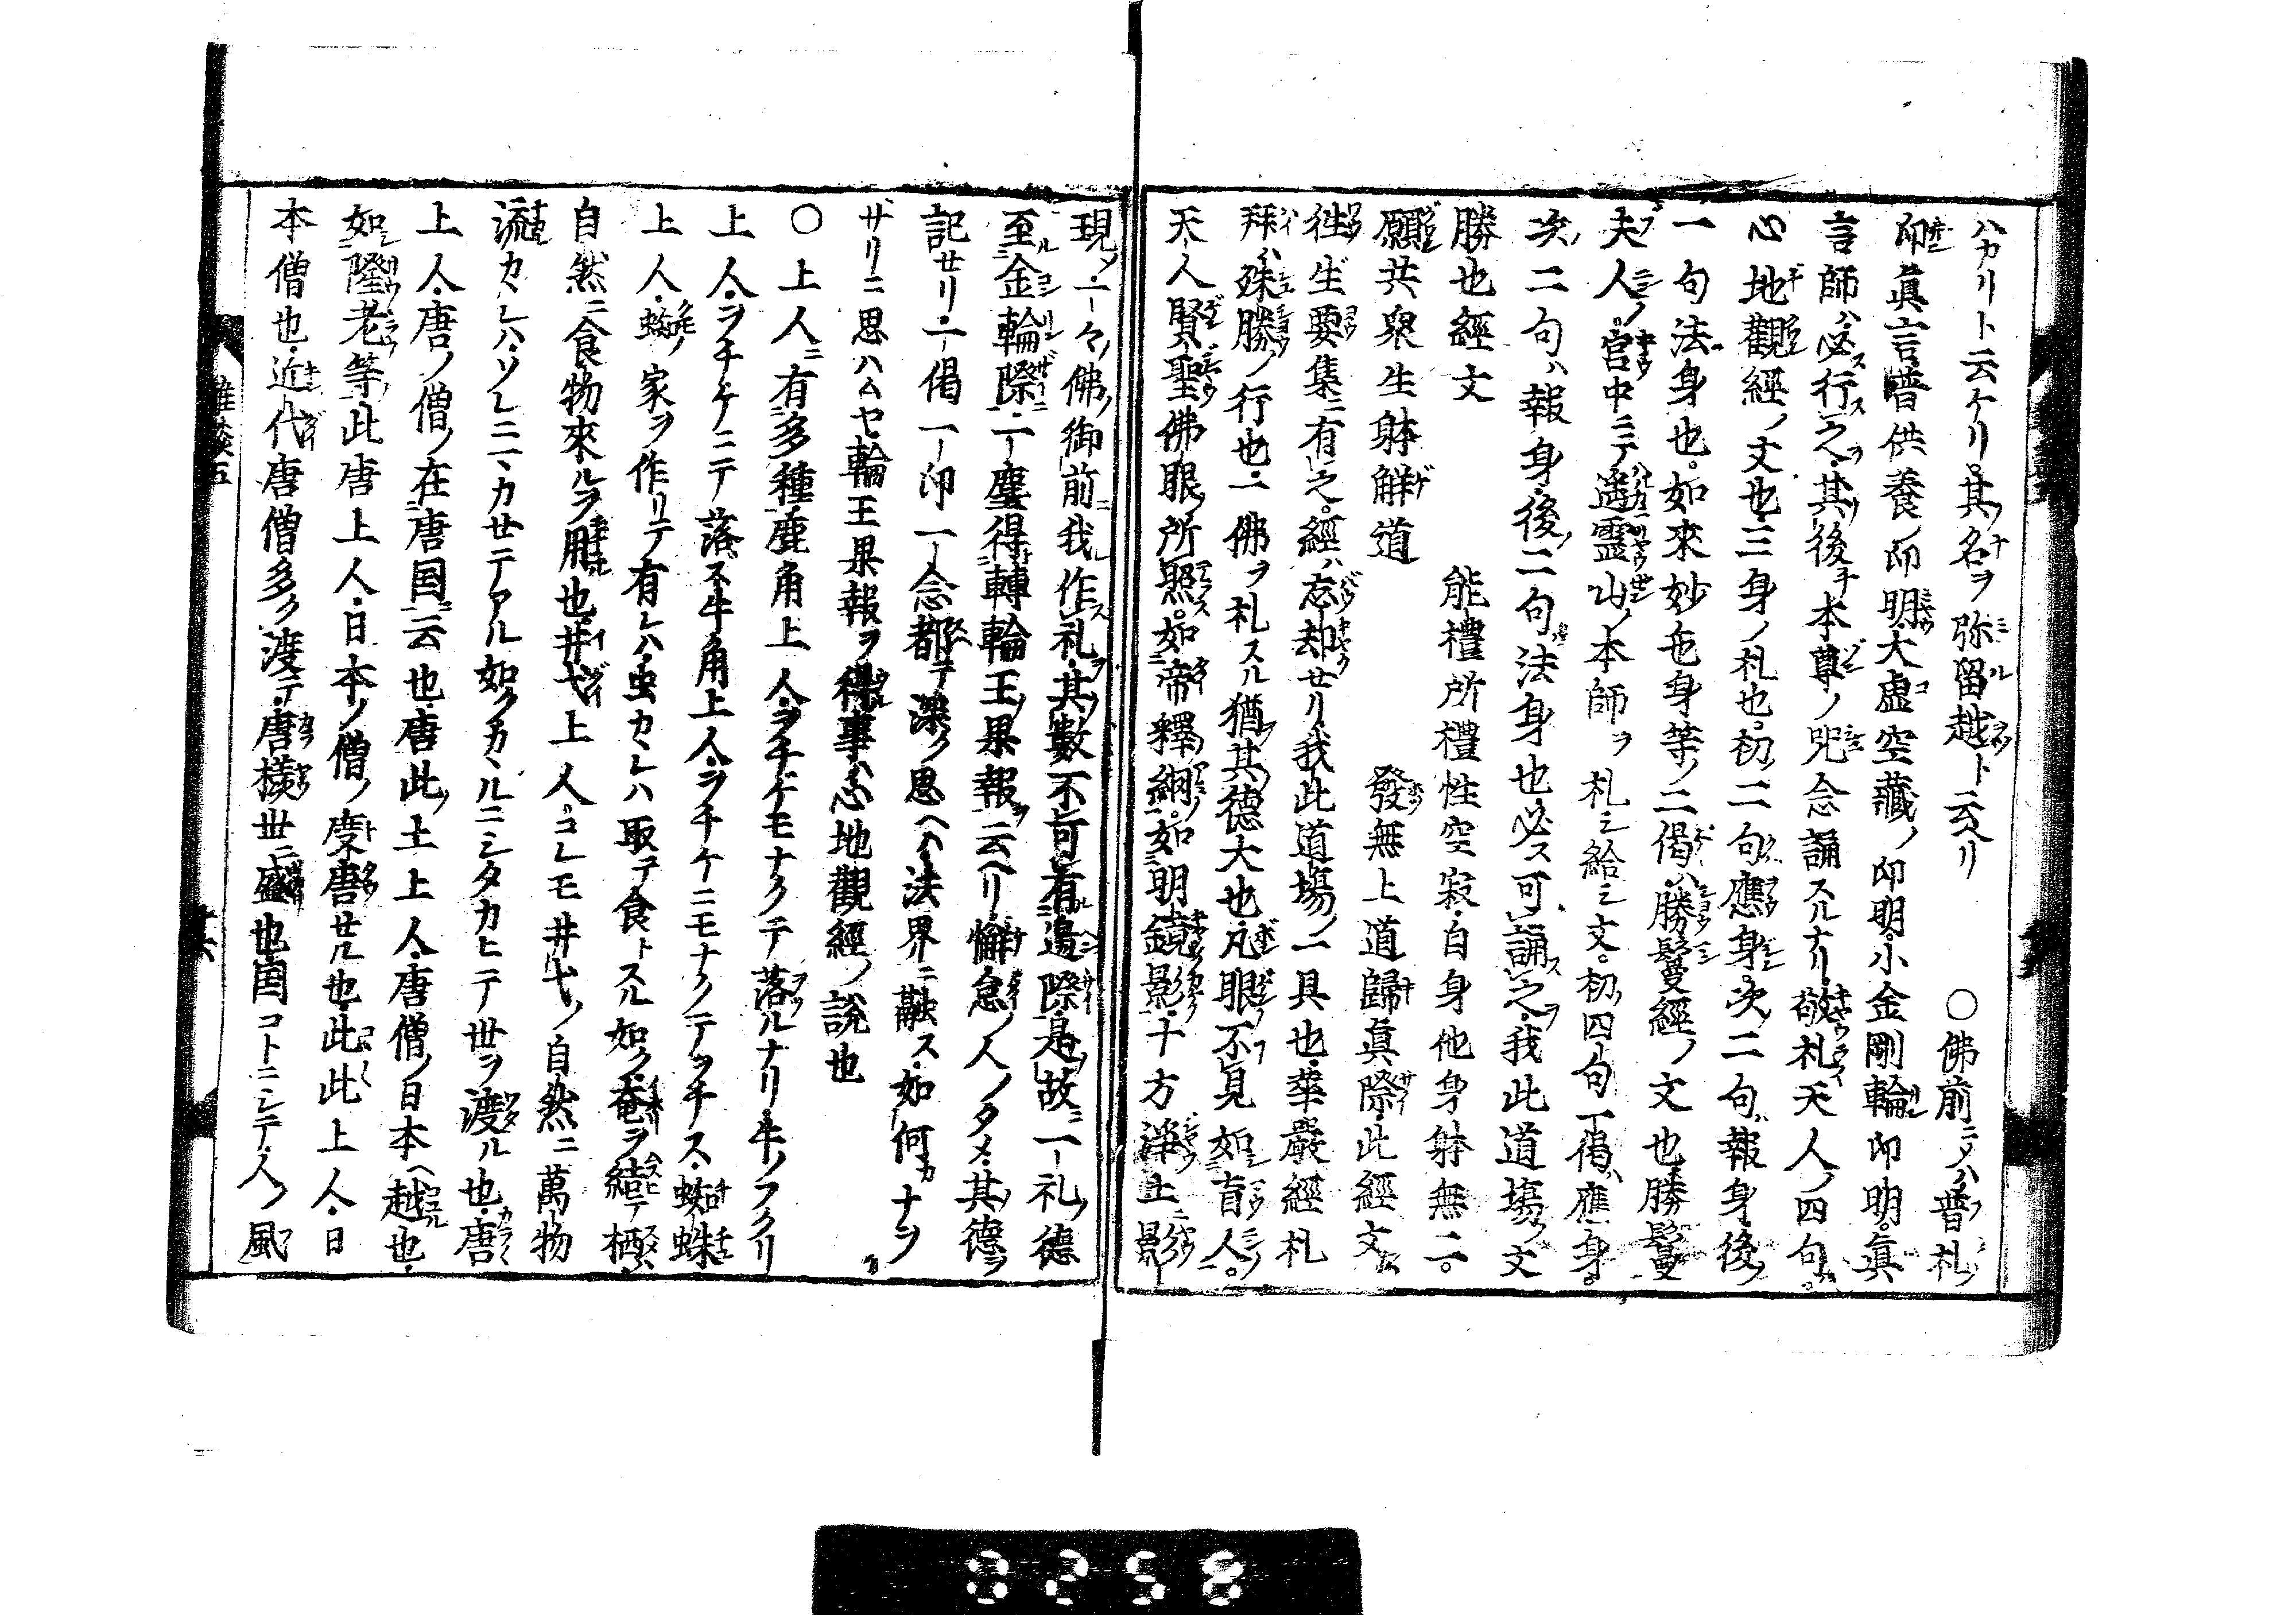 ハカリト云ケリ其名ヲ弥留越ト云ヘリ　○佛前ニメハ普礼
印眞言普供養ノ印明大虚空藏ノ印明小金剛輪印明眞
言師ハ必行之其後チ本尊ノ呪念誦スルナリ敬礼天人ノ四句
心地觀經ノ文也三身ノ札也初二句應身次二句報身後
一句法身也如來妙色身等ノ二偈ハ勝鬘經ノ文也勝鬘
夫人ノ宮中ニテ遥霊山ノ本師ヲ札シ給シ文初四句一偈ハ應身
次二句ハ報身後二句法身也必ス可誦之我此道塲ノ文
勝也經文　　能禮所禮性空寂自身他身躰無二
願共衆生躰解道　　發無上道歸眞際此經文
徃生要集ニ有之經ハ忘却セリ我此道塲ノ一具也華嚴經札
拜ハ殊勝ノ行也一佛ヲ札スル猶其德大也凡眼不見如盲人
天人賢聖佛眼所照如帝釋網如明鏡影十方浄土影
現ノ一々佛御前我作札其數不可有邉際是故ニ一礼ノ德
至金輪際一塵得轉輪王果報云ヘリ懈怠ノ人ノタメ其德ヲ
記セリ一偈一印一念都テ深ク思ヘハ法界ニ融ス如何カナヲ
ザリニ思ハムヤ輪王果報ヲ得事ハ心地觀經ノ說也
○上人ニ有多種鹿角上人ヲチゲモナクテ落ルナリ牛ノフクリ
上人ヲチケニテ落ス牛角上人ヲチケニモナクノテヲチス蜘蛛
上人蜘ノ家ヲ作リテ有レハ虫カヽレハ取テ食トスル如ク奄ヲ結テ栖
自然ニ食物來ルヲ用也井弋上人コレモ井弋ノ自然ニ萬物
流カヽレハソレニヽカセテアル如クカヽルニシタカヒテ世ヲ渡ル也唐
上人唐ノ僧ノ在唐国云也唐此土上人唐僧ノ日本ヘ越也
如隆老等此唐上人日本ノ僧ノ度唐セル也此此上人日
本僧也近代唐僧多ク渡テ唐様世ニ盛也国コトニシテ人ノ風
雜談五